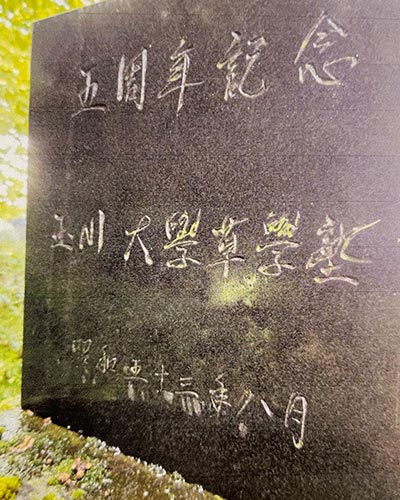 五周年記念
玉川大學草學塾
昭和五十三年八月